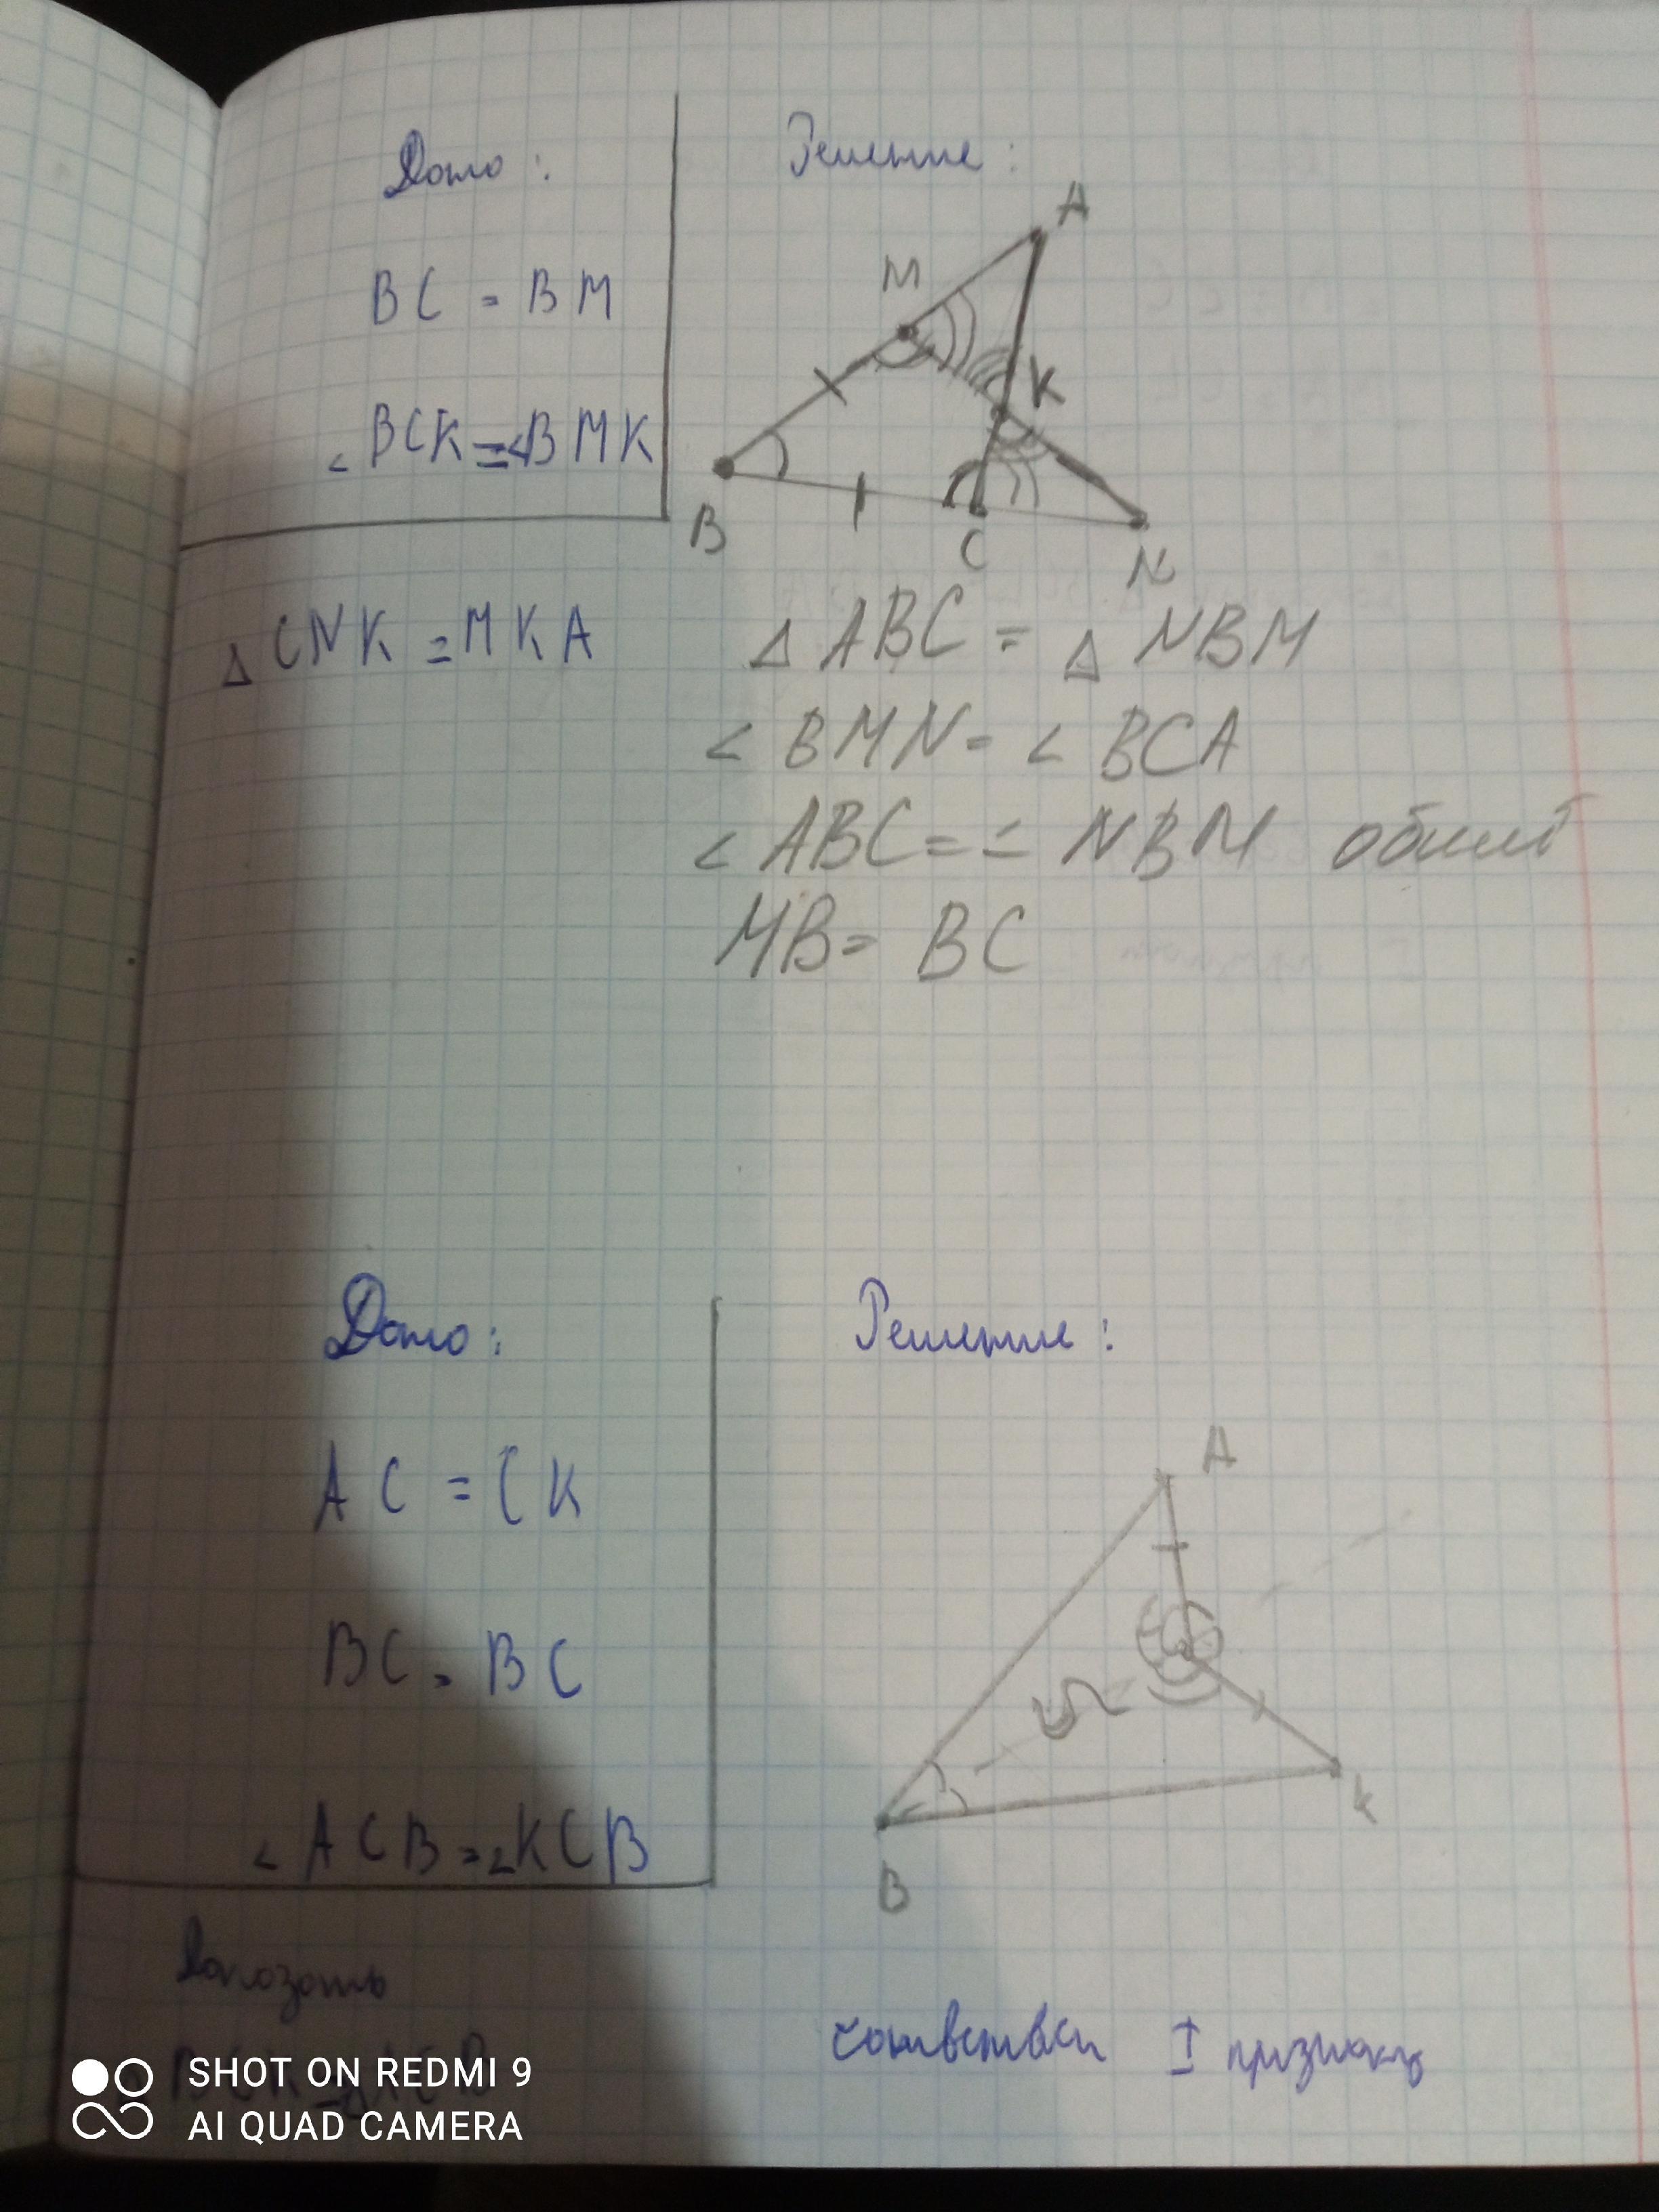 Дано:
BC = BM
∠BCK = ∠BMK
△CNK = MKA
Решение:
A
M
K
B
C
N
△ABC = △NBM
∠BMN = ∠BCA
∠ABC = ∠NBM общий
MB = BC
Дано:
AC = CK
BC = BC
∠ACB = ∠KCB
Доказать
Решение:
A
K
B
I признаку
SHOT ON REDMI 9
AI QUAD CAMERA